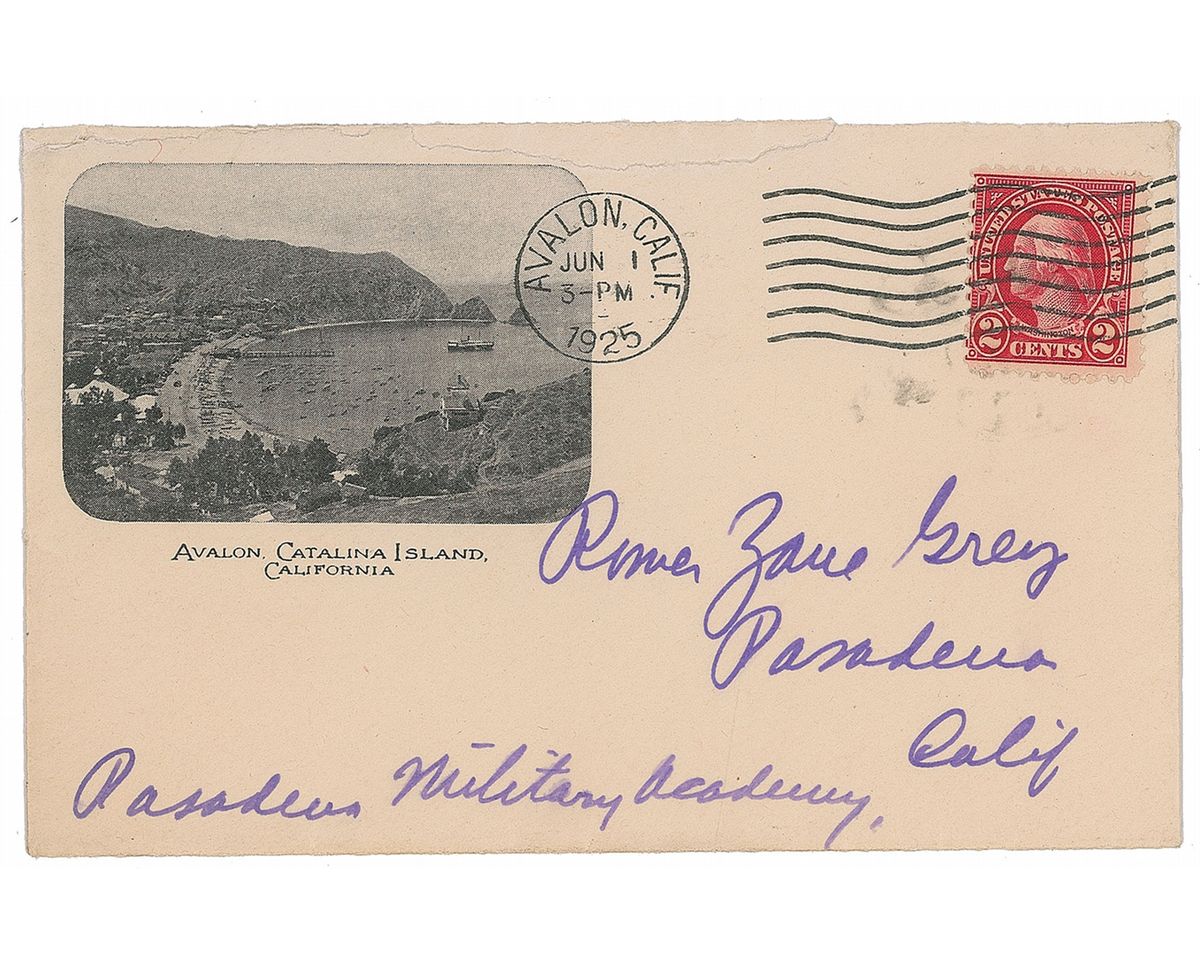 AVALON, CALIF.
JUN 1
3-PM
1925
UNITED STATES POSTAGE
WASHINGTON
2 CENTS 2
AVALON, CATALINA ISLAND,
CALIFORNIA
Romer Zane Grey
Pasadena
Calif
Pasadena Military Academy.